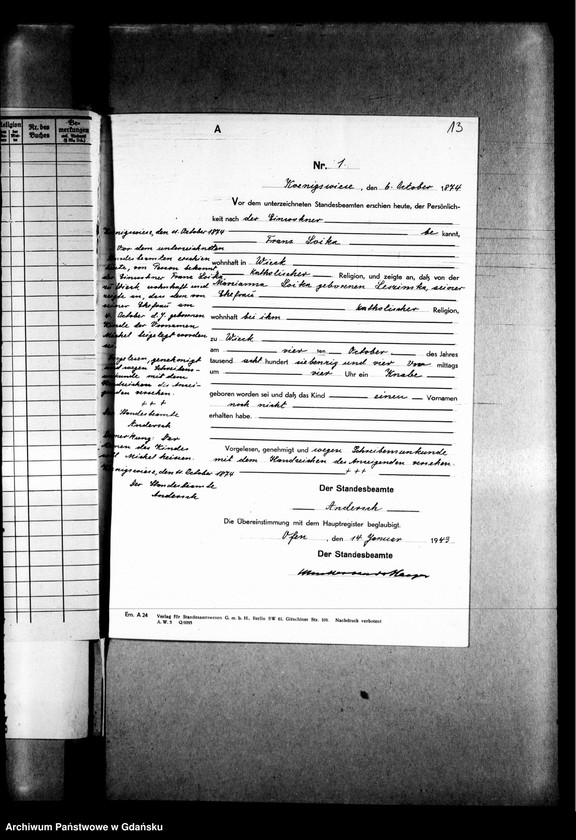 Religion
Nr. des Buches
Be-
merkungen
A
13
Nr. 1
Koenigswiese, den 6. October 1874
Vor dem unterzeichneten Standesbeamten erschien heute, der Persönlich-
keit nach der Einwohner
be kannt,
Franz Loika
wohnhaft in Wieck
katholischer Religion, und zeigte an, daß von der
Marianna Loika geborenen seiner
Ehefrau
katholischer Religion,
wohnhaft bei ihm
zu Wieck
am vier ten October des Jahres
tausend acht hundert siebenzig und vier Vor mittags
um vier Uhr ein Knabe
geboren worden sei und daß das Kind einen Vornamen
noch nicht
erhalten habe.
Vorgelesen, genehmigt und wegen Schreibensunkunde
mit dem Handzeichen des Anzeigenden versehen.
+++
Der Standesbeamte
Andersch
Die Übereinstimmung mit dem Hauptregister beglaubigt.
Ofen, den 14. Januar 1943
Der Standesbeamte
Königswiese, den 11. October 1874
Vor dem unterzeichneten
Standesbeamten erschien
heute, von Person bekannt
der Einwohner Franz Loika,
zu Wieck wohnhaft und
zeigte an, dass dem von
seiner Ehefrau am
4. October d. J. geborenen
Kinde der Vornamen
Michel beigelegt worden
sei.
Vorgelesen, genehmigt
und wegen Schreibens-
unkunde mit dem
Handzeichen des Anzei-
genden versehen.
+++
Der Standesbeamte
Andersch
Bemerkung: Der
Namen des Kindes
soll Michel heissen.
Königswiese, den 11. October 1874
Der Standesbeamte
Andersch
Em. A 24 Verlag für Standesamtswesen G. m. b. H., Berlin SW 61, Gitschiner Str. 109. Nachdruck verboten!
Archiwum Państwowe w Gdańsku